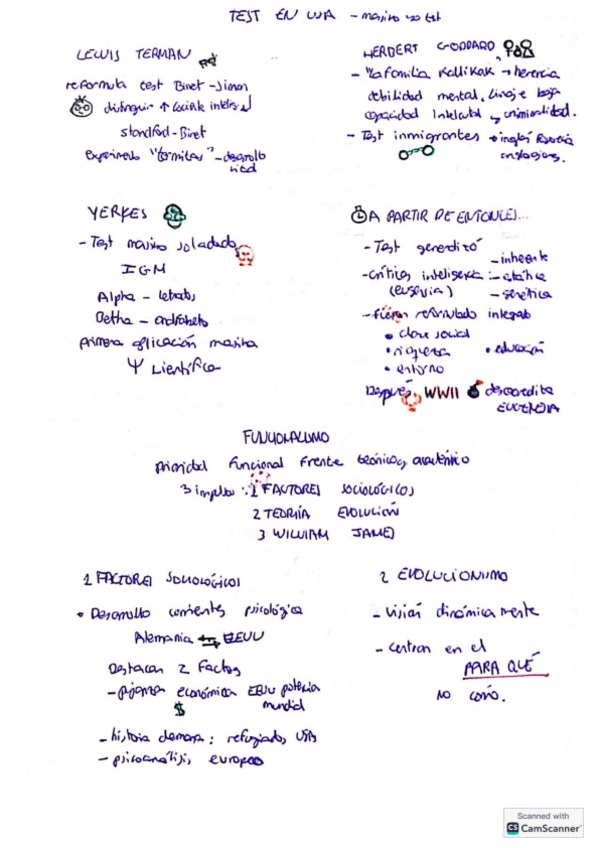 TEST EN USA - masivo 40 test
LEWIS TERMAN
reformula test Binet - Simon
distinguir ↑ Cociente intelectual
Standford - Binet
Experimento "termitas" - desarrollo
HERBERT GODDARD
- "La familia Kallikak → herencia
debilidad mental. Linaje baja
capacidad intelectual y criminalidad.
- Test inmigrantes → inglés
YERKES
- Test masivo soldados
IGM
Alpha - letrados
Betha - analfabeto
primera aplicación masiva
Ψ Científica
A PARTIR DE ENTONCES...
- Test generalizó
- críticas inteligencia:
(eugenesia)
- inherente
- estática
- genética
- fueron reformulado integrando
• clase social
• riqueza
• educación
• entorno
Después WWII desacredita
EUGENESIA
FUNCIONALISMO
prioridad funcional frente teórico y académico
3 impulsos: 1 FACTORES SOCIOLÓGICOS
2 TEORÍA EVOLUCIÓN
3 WILLIAM JAMES
1 FACTORES SOCIOLÓGICOS
• Desarrollo corrientes psicológica
Alemania ⇆ EEUU
Destacan 2 Factores
- pujanza económica EEUU potencia
mundial
$
- historia alemana: refugiados USA
- psicoanálisis europeo
2 EVOLUCIONISMO
- visión dinámica mente
- centran en el
PARA QUÉ
no cómo.
Scanned with
CS CamScanner